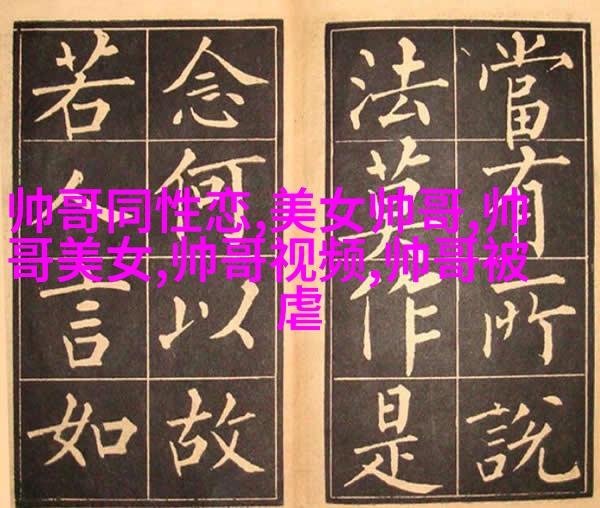 當有所說
法莫作是
念何以故
若人言如
帅哥同性恋,美女帅哥,帅
哥美女,帅哥视频,帅哥被
虐